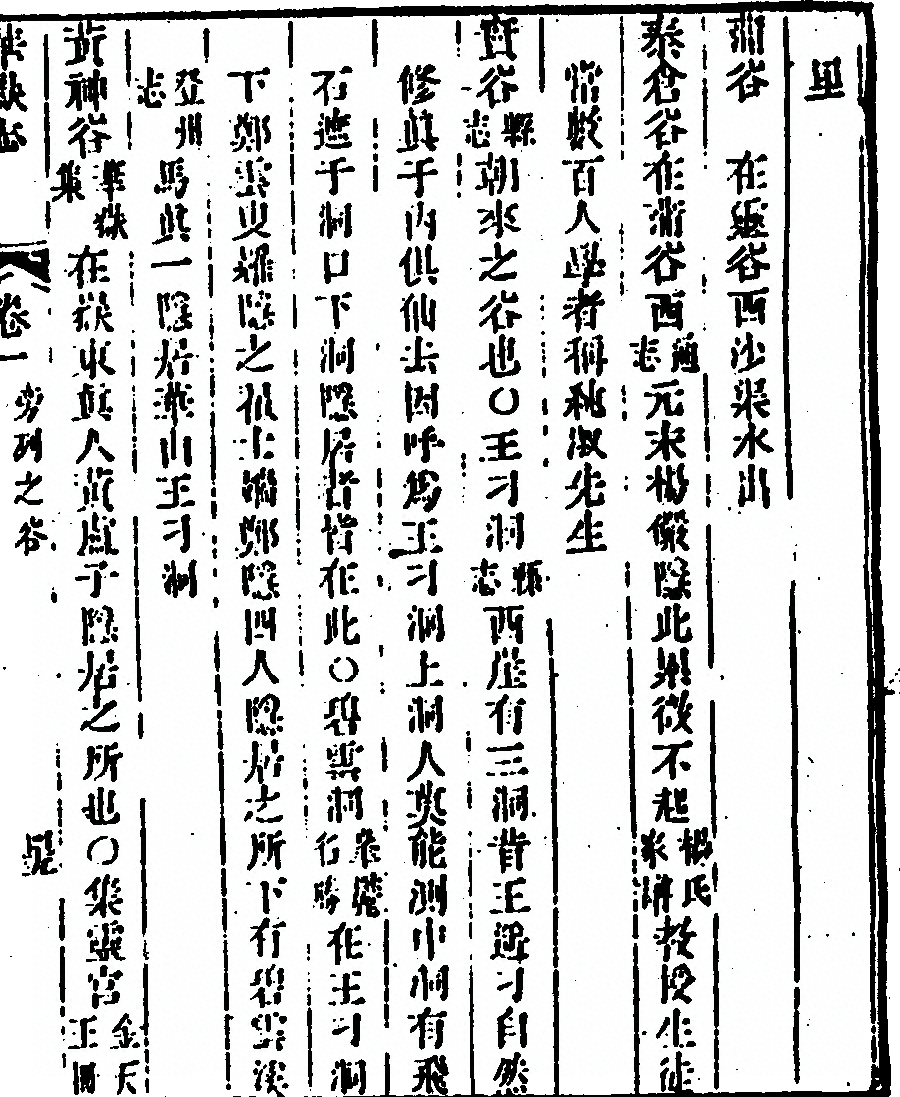 里
蒲谷　在甕谷西沙渠水出
泰倉谷在蒲谷西通志元末楊儼隱此累徵不起楊氏家譜教授生徒
常數百人學者稱純淑先生
賣谷縣志朝來之谷也○王刁洞縣志西崖有三洞昔王遥刁自然
修眞于內俱仙去因呼爲王刁洞上洞人莫能測中洞有飛
石遮于洞口下洞隱居者皆在此○碧雲洞希夷行勝在王刁洞
下鄭雲叟羅隱之李道士鄭隱四人隱居之所下有碧雲溪
登州志馬眞一隱居華山王刁洞
黃神谷華嶽集在嶽東眞人黃盧子隱居之所也○集靈宮金天王冊
華嶽志　卷一　旁列之谷